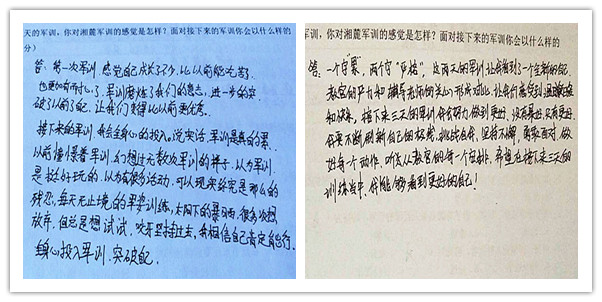 天的军训，你对湘麓军训的感觉是怎样？面对接下来的军训你会以什么样的
分）
答：第一次军训，感觉自己成长了不少，比以前能吃苦了
也更加有耐心了，军训磨炼了我们的意志，进一步的突
破了以前的自己，让我们变得比以前更优秀。
接下来的军训，我会全身心的投入，说实话，军训是真的累，
以前憧憬着军训，幻想过无数次军训的样子，以为军训
是挺好玩的，以为有很多活动，可以现实总是那么的
残忍，每天无止境的早晚训练，太阳下的暴晒，很多次想
放弃，但总是想试试，咬牙坚持过去，我相信自己肯定能行。
全身心投入军训，突破自己。
军训，你对湘麓军训的感觉是怎样？面对接下来的军训你会以什么样的
答：一个字"累"，两个字"严格"，这两天的军训，让我看到了一个全新的自己，
教官的严厉和辅导老师的关心形成对比，让我们感受到
和快乐，接下来三天的军训我会努力做到更好，没有最好，只有更好
我要不断刷新自己的极限，挑战自我，坚持不懈，勇敢面对，做
好每一个动作，听从教官的每一个安排，希望在接下来三天的
训练当中，我能够看到更好的自己！